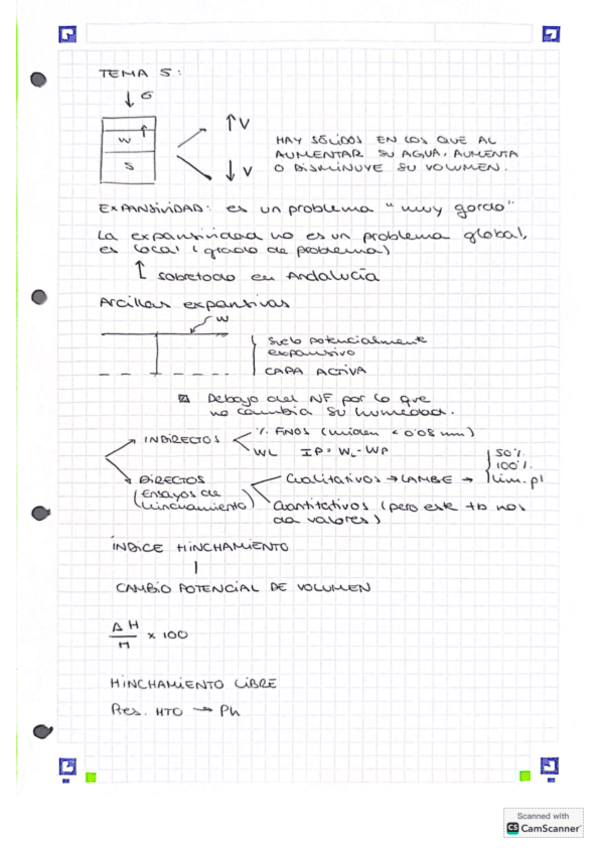 TEMA 5:
↓ σ
W
S
↑V
↓V
HAY SÓLIDOS EN LOS QUE AL
AUMENTAR SU AGUA, AUMENTA
O DISMINUYE SU VOLUMEN.
EXPANSIVIDAD: es un problema "muy gordo"
La expansividad no es un problema global,
es local (grado de problema)
↑ sobretodo en Andalucía
Arcillas expansivas
W
Suelo potencialmente
expansivo
CAPA ACTIVA
Debajo del NF por lo que
no cambia su humedad.
INDIRECTOS
% FINOS (miden < 0'08 mm)
WL IP = WL - WP
DIRECTOS
(Ensayos de
hinchamiento)
Cualitativos → LAMBE →
50%
100%
lim. pl
Cuantitativos (pero este tb nos
da valores)
ÍNDICE HINCHAMIENTO
CAMBIO POTENCIAL DE VOLUMEN
ΔH
H
x 100
HINCHAMIENTO LIBRE
Pres. HTO → Ph
Scanned with
CS CamScanner